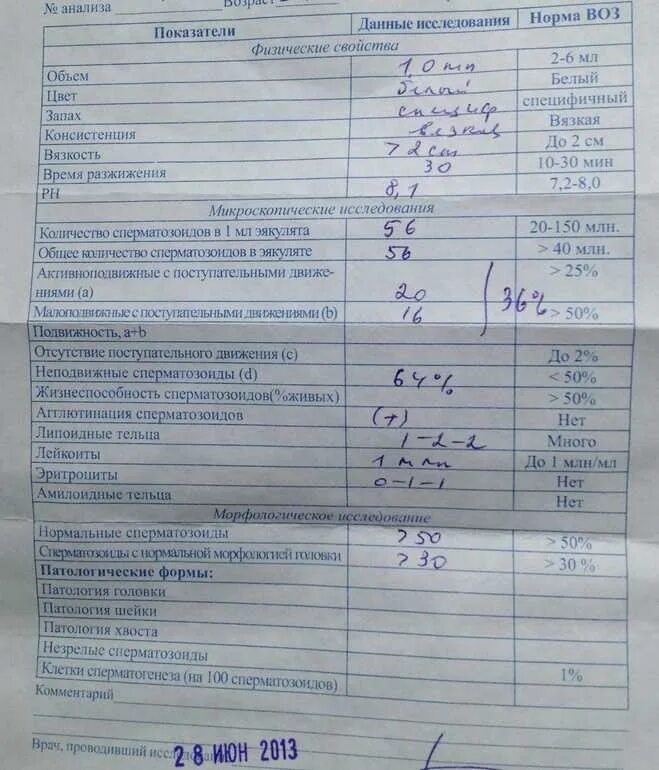 № анализа Возраст
Показатели Данные исследования Норма ВОЗ
Физические свойства
Объем 1,0 мл 2-6 мл
Цвет белый Белый
Запах специф специфичный
Консистенция вязкая Вязкая
Вязкость >2см До 2 см
Время разжижения 30 10-30 мин
PH 8,1 7,2-8,0
Микроскопические исследования
Количество сперматозоидов в 1 мл эякулята 56 20-150 млн.
Общее количество сперматозоидов в эякуляте 56 > 40 млн.
Активноподвижные с поступательными движе-
ниями (a) 20 > 25%
36%
Малоподвижные с поступательными движениями (b) 16 > 50%
Подвижность, a+b
Отсутствие поступательного движения (c) До 2%
Неподвижные сперматозоиды (d) 64% < 50%
Жизнеспособность сперматозоидов(%живых) > 50%
Агглютинация сперматозоидов (+) Нет
Липоидные тельца 1-2-2 Много
Лейкоиты 1 млн До 1 млн/мл
Эритроциты 0-1-1 Нет
Амилоидные тельца Нет
Морфологическое исследование
Нормальные сперматозоиды >50 > 50%
Сперматозоиды с нормальной морфологией головки >30 > 30 %
Патологические формы:
Патология головки
Патология шейки
Патология хвоста
Незрелые сперматозоиды
Клетки сперматогенеза (на 100 сперматозоидов) 1%
Комментарий
Врач, проводивший
28 ИЮН 2013